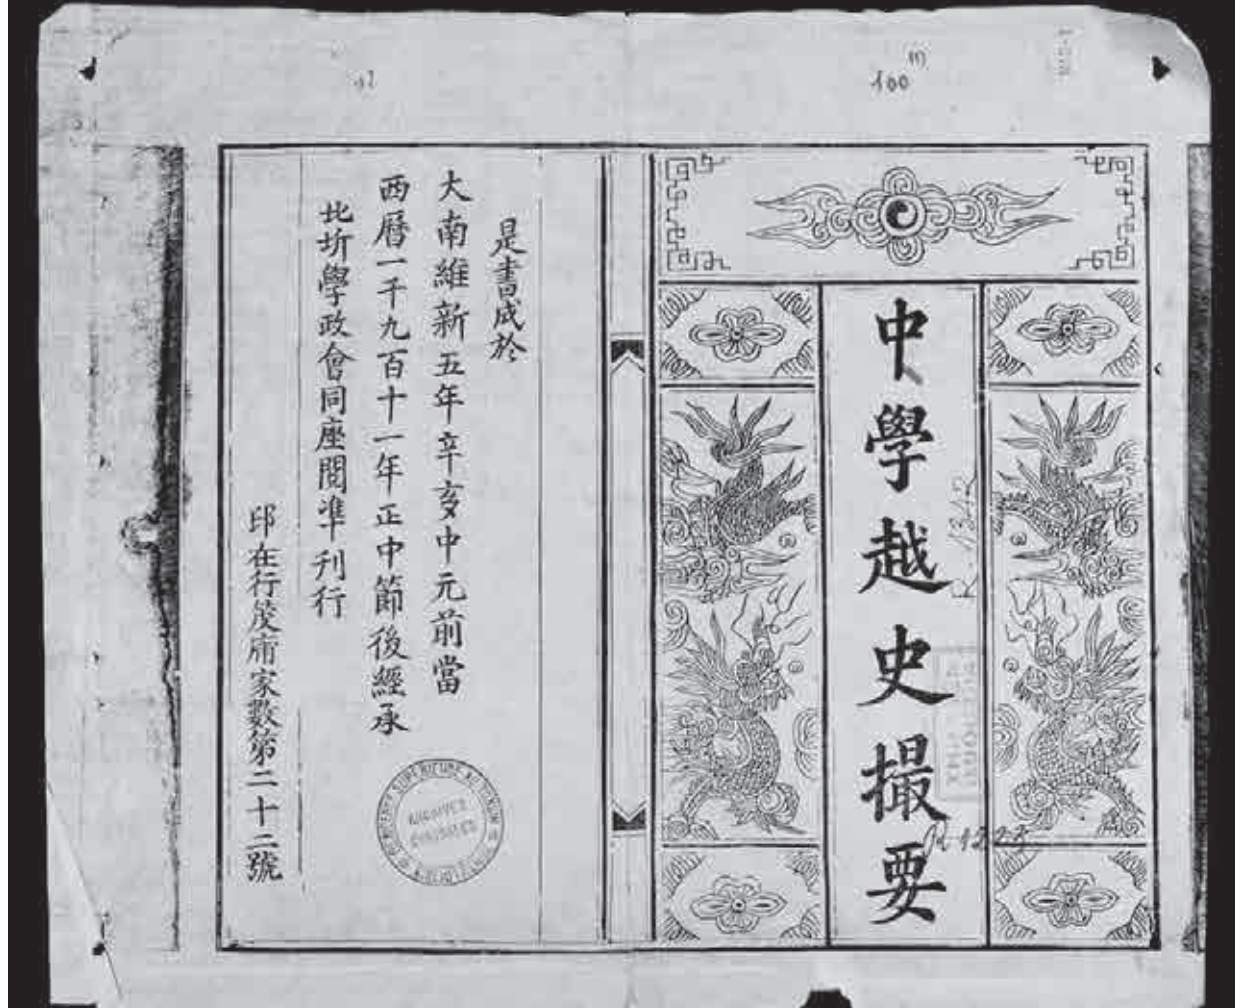 100
中學越史撮要
R.1323
是書成於
大南維新五年辛亥中元前當
西曆一千九百十一年正中節後經承
北圻學政會同座閱準刊行
印在行茂庯家數第二十二號
ARCHIVES